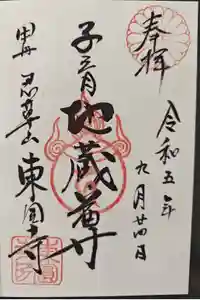 奉拝
令和五年
九月廿四日
子育
地蔵尊
東圓寺